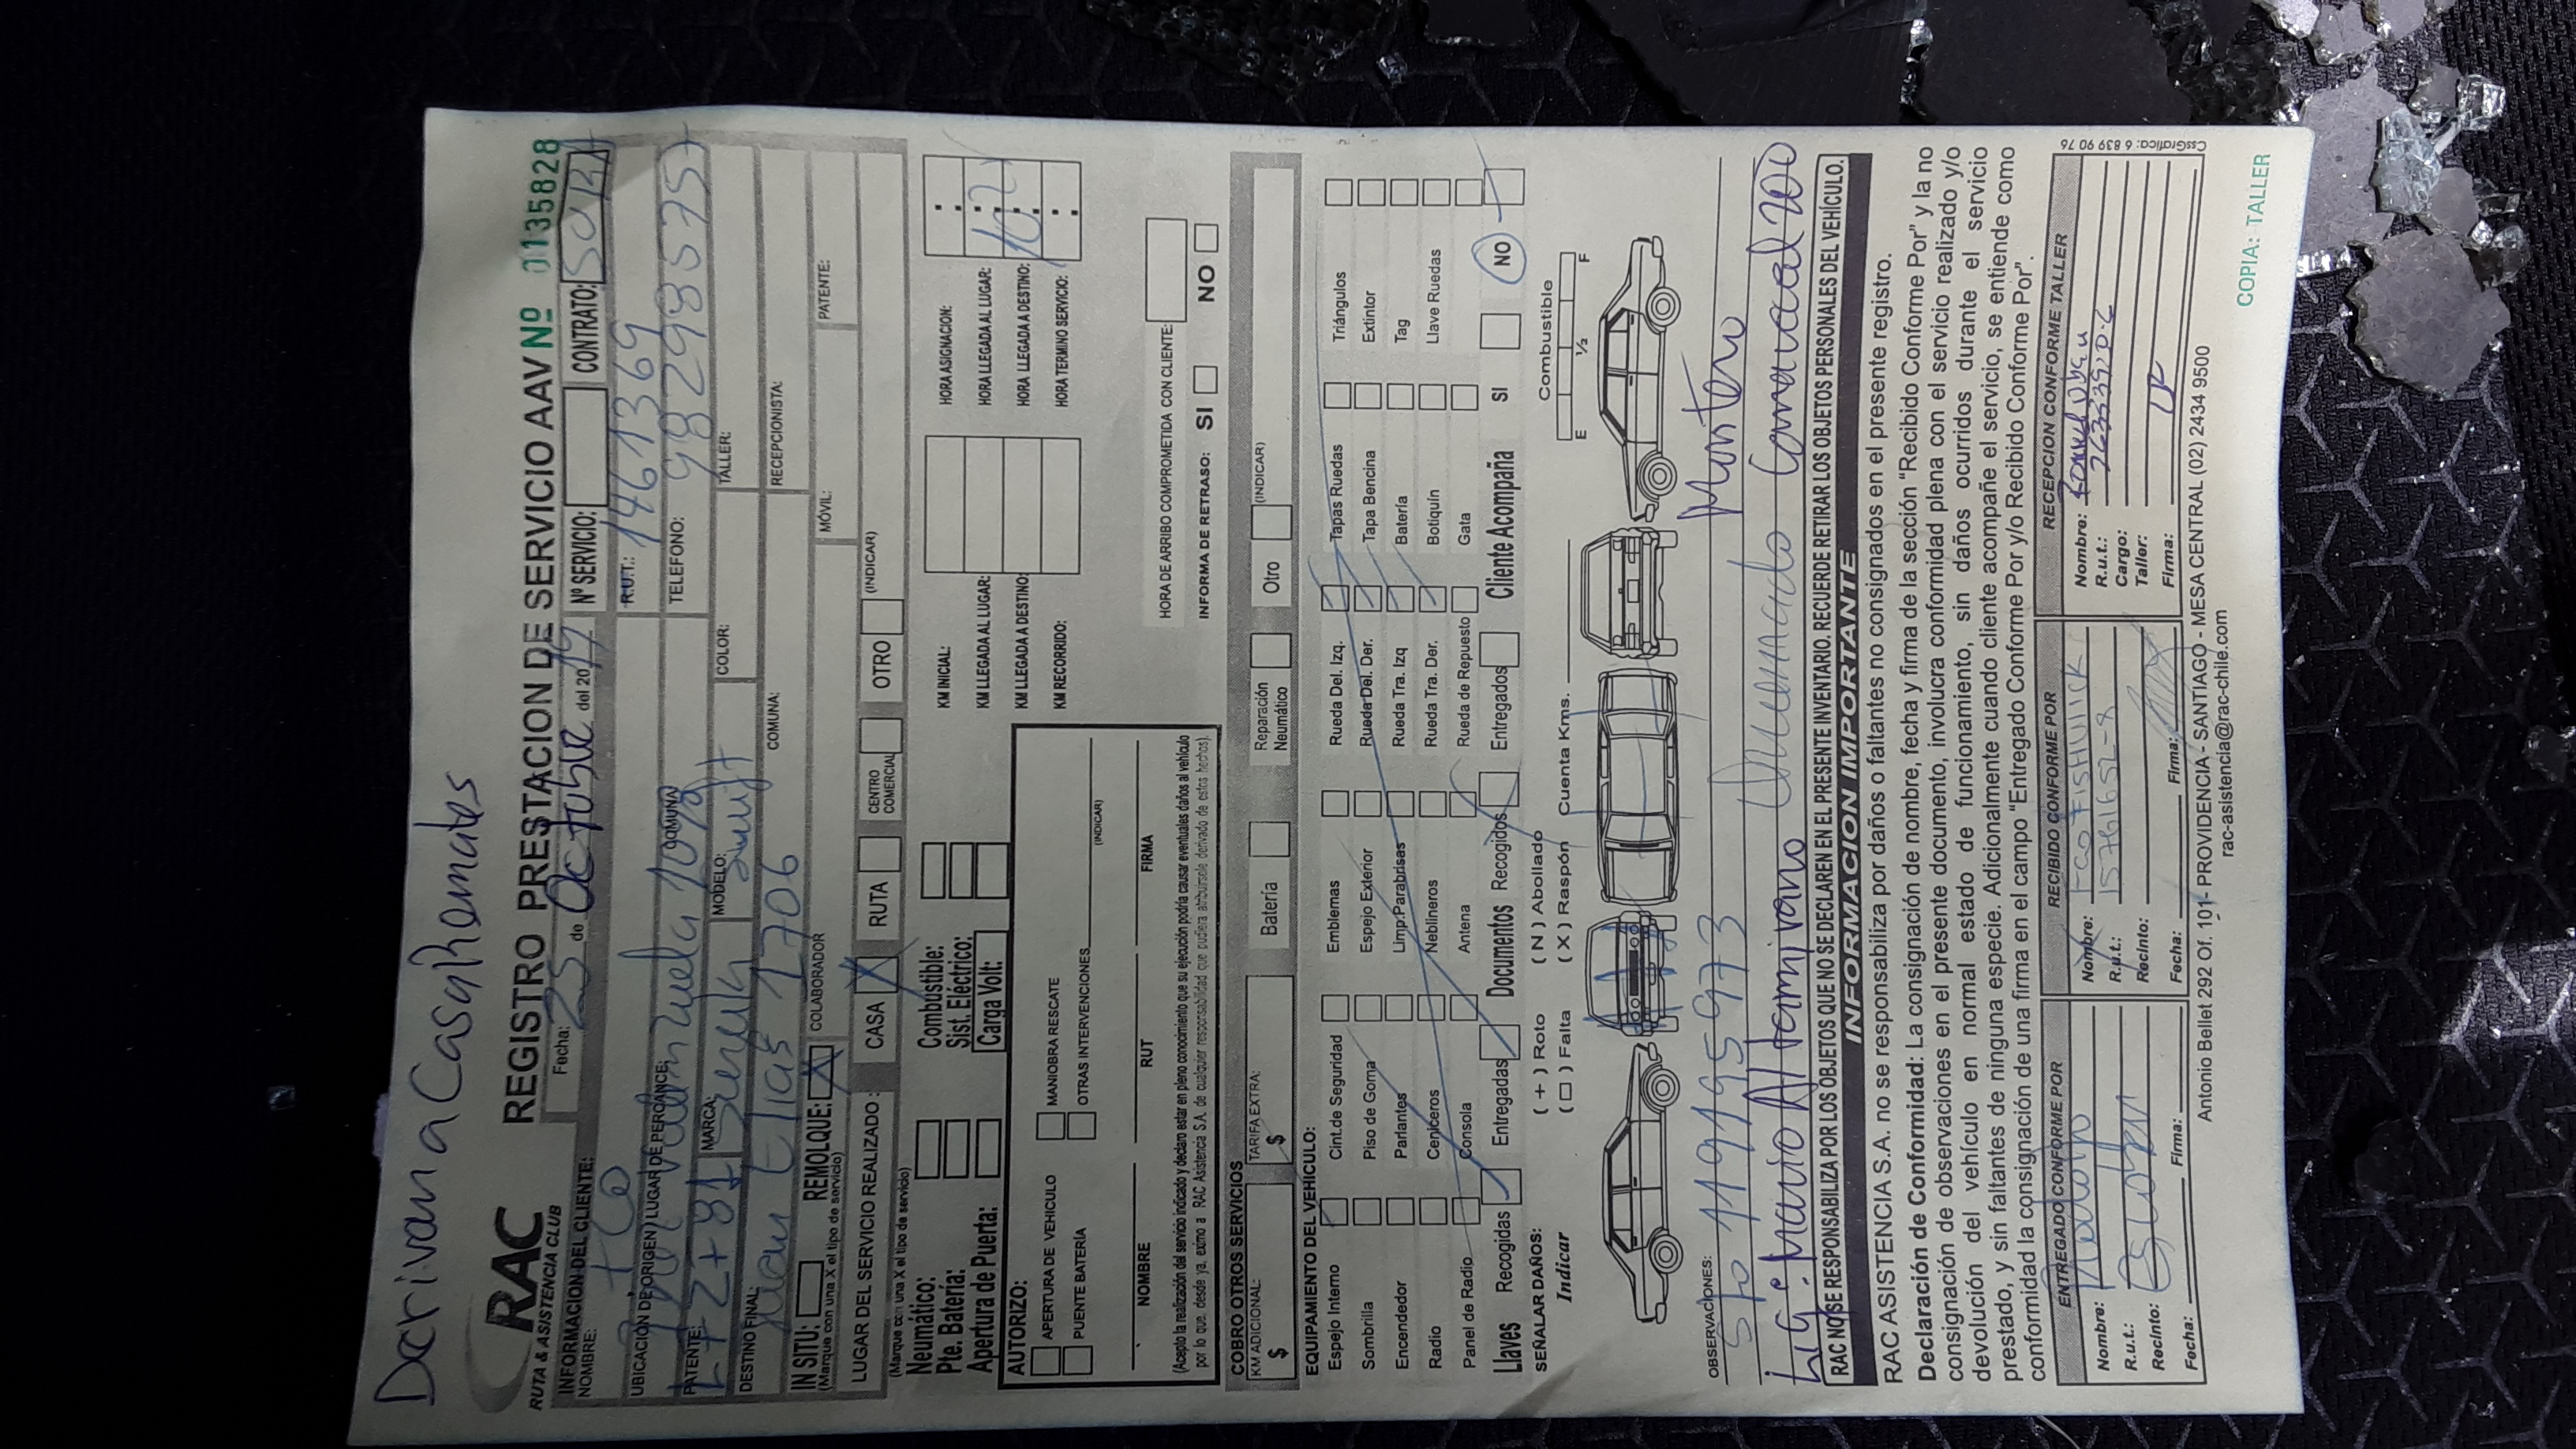 Derivan a Casa Rematés
RAC
RUTA & ASISTENCIA CLUB
REGISTRO PRESTACION DE SERVICIO AAV Nº 0135828
Fecha: 25 de Octubre del 2019
Nº SERVICIO:
CONTRATO:
INFORMACION DEL CLIENTE:
NOMBRE:
R.U.T.: 1461369
UBICACIÓN DE ORIGEN / LUGAR DE PERCANCE:
COMUNA:
TELEFONO: 982985757
PATENTE:
MARCA:
MODELO:
COLOR:
TALLER:
DESTINO FINAL: Elias 1706
COMUNA:
RECEPCIONISTA:
IN SITU:
REMOLQUE: X
(Marque con una X el tipo de servicio)
COLABORADOR
MÓVIL:
PATENTE:
LUGAR DEL SERVICIO REALIZADO:
CASA X
RUTA
CENTRO COMERCIAL
OTRO
(INDICAR)
(Marque con una X el tipo de servicio)
Neumático:
Pte. Batería:
Apertura de Puerta:
Combustible:
Sist. Eléctrico:
Carga Volt:
KM INICIAL:
KM LLEGADA AL LUGAR:
KM LLEGADA A DESTINO:
KM RECORRIDO:
HORA ASIGNACION:
HORA LLEGADA AL LUGAR:
HORA LLEGADA A DESTINO:
HORA TERMINO SERVICIO:
AUTORIZO:
APERTURA DE VEHICULO
MANIOBRA RESCATE
PUENTE BATERÍA
OTRAS INTERVENCIONES
(INDICAR)
NOMBRE
RUT
FIRMA
(Acepto la realización del servicio indicado y declaro estar en pleno conocimiento que su ejecución podría causar eventuales daños al vehículo
por lo que, desde ya, eximo a RAC Asistencia S.A. de cualquier responsabilidad que pudiera atribuirse derivado de estos hechos).
HORA DE ARRIBO COMPROMETIDA CON CLIENTE:
INFORMA DE RETRASO: SI NO
COBRO OTROS SERVICIOS
KM ADICIONAL:
$
TARIFA EXTRA:
$
Batería
Reparación Neumático
Otro
(INDICAR)
EQUIPAMIENTO DEL VEHICULO:
Espejo Interno
Cint.de Seguridad
Emblemas
Rueda Del. Izq.
Tapas Ruedas
Triángulos
Sombrilla
Piso de Goma
Espejo Exterior
Rueda Del. Der.
Tapa Bencina
Extintor
Encendedor
Parlantes
Limp.Parabrisas
Rueda Tra. Izq
Batería
Tag
Radio
Ceniceros
Neblineros
Rueda Tra. Der.
Botiquín
Llave Ruedas
Panel de Radio
Consola
Antena
Rueda de Repuesto
Gata
Llaves Recogidas Entregadas
Documentos Recogidos Entregados
Cliente Acompaña SI NO
SEÑALAR DAÑOS:
Indicar
( + ) Roto
( N ) Abollado
( □ ) Falta
( X ) Raspón
Cuenta Kms.
Combustible
E ½ F
OBSERVACIONES:
Sto 119195973 Montero
Lg: Mario Altamirano
RAC NO SE RESPONSABILIZA POR LOS OBJETOS QUE NO SE DECLAREN EN EL PRESENTE INVENTARIO. RECUERDE RETIRAR LOS OBJETOS PERSONALES DEL VEHÍCULO.
INFORMACION IMPORTANTE
RAC ASISTENCIA S.A. no se responsabiliza por daños o faltantes no consignados en el presente registro.
Declaración de Conformidad: La consignación de nombre, fecha y firma de la sección "Recibido Conforme Por" y la no
consignación de observaciones en el presente documento, involucra conformidad plena con el servicio realizado y/o
devolución del vehículo en normal estado de funcionamiento, sin daños ocurridos durante el servicio
prestado, y sin faltantes de ninguna especie. Adicionalmente cuando cliente acompañe el servicio, se entiende como
conformidad la consignación de una firma en el campo "Entregado Conforme Por y/o Recibido Conforme Por".
ENTREGADO CONFORME POR
Nombre:
R.u.t.:
Recinto:
Fecha:
Firma:
RECIBIDO CONFORME POR
Nombre:
R.u.t.: 15761652-8
Recinto:
Fecha:
Firma:
RECEPCION CONFORME TALLER
Nombre:
R.u.t.:
Cargo:
Taller:
Firma:
CssGrafica: 6 839 90 76
Antonio Bellet 292 Of. 101- PROVIDENCIA - SANTIAGO - MESA CENTRAL (02) 2434 9500
rac-asistencia@rac-chile.com
COPIA: TALLER